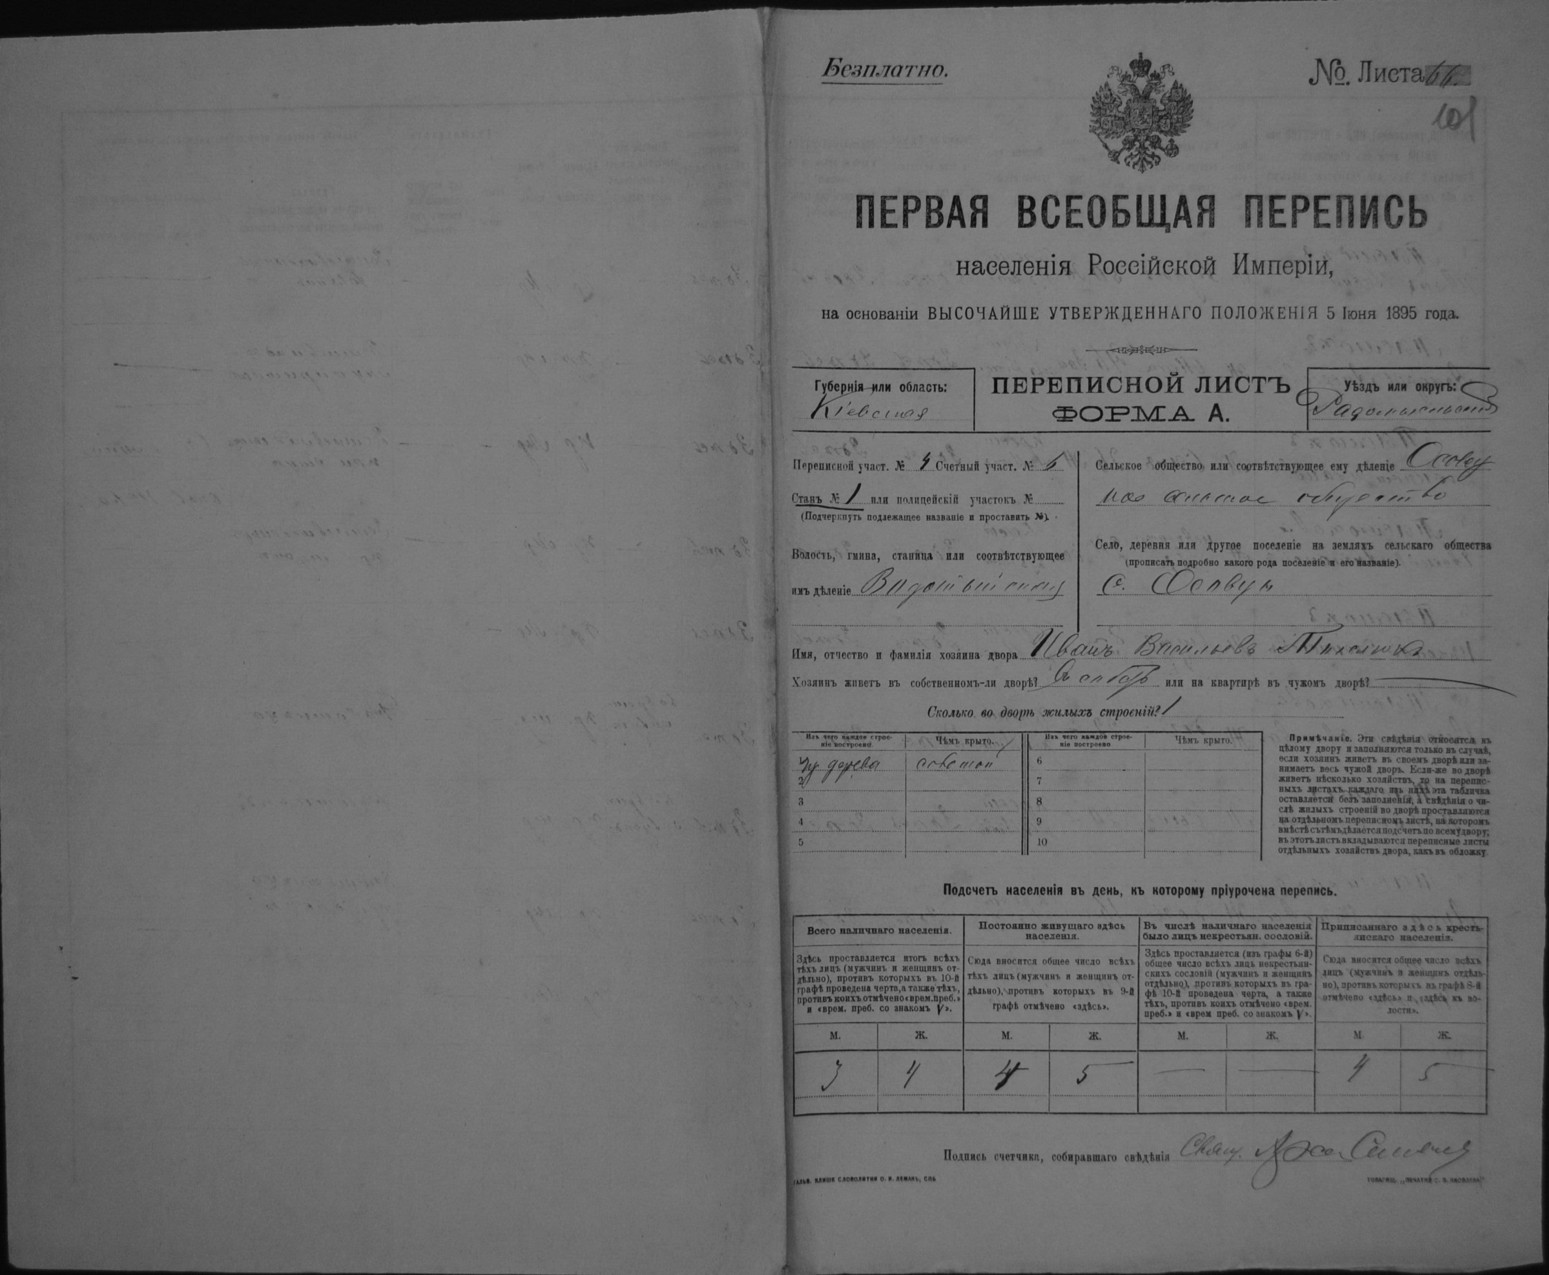 Безплатно.
№. Листа
ПЕРВАЯ ВСЕОБЩАЯ ПЕРЕПИСЬ
населенія Россійской Имперіи,
на основаніи ВЫСОЧАЙШЕ УТВЕРЖДЕННАГО ПОЛОЖЕНІЯ 5 Іюня 1895 года.
Губернія или область:
Кіевская
ПЕРЕПИСНОЙ ЛИСТЪ
ФОРМА А.
Уѣздъ или округъ:
Радомысльскій
Переписной участ. № 4 Счетный участ. № 6
Станъ № 1 или полицейскій участокъ №
(Подчеркнуть подлежащее названіе и проставить №).
Волость, гмина, станица или соотвѣтствующее
имъ дѣленіе
Сельское общество или соотвѣтствующее ему дѣленіе
сельское общество
Село, деревня или другое поселеніе на земляхъ сельскаго общества
(прописать подробно какого рода поселеніе и его названіе).
с.
Имя, отчество и фамилія хозяина двора Иванъ Васильевъ
Хозяинъ живетъ въ собственномъ-ли дворѣ? или на квартирѣ въ чужомъ дворѣ?
Сколько во дворѣ жилыхъ строеній? 1
Изъ чего каждое строеніе построено.
Чѣмъ крыто.
Изъ чего каждое строеніе построено
Чѣмъ крыто.
Изъ дерева
соломой
2
3
4
5
6
7
8
9
10
Примѣчаніе. Эти свѣдѣнія относятся къ
цѣлому двору и заполняются только въ случаѣ,
если хозяинъ живетъ въ своемъ дворѣ или за-
нимаетъ весь чужой дворъ. Если-же во дворѣ
живетъ нѣсколько хозяйствъ, то на перепис-
ныхъ листахъ каждаго изъ нихъ эта табличка
оставляется безъ заполненія, а свѣдѣнія о чи-
слѣ жилыхъ строеній во дворѣ проставляются
на отдѣльномъ переписномъ листѣ, на которомъ
вмѣстѣ съ тѣмъ дѣлается подсчетъ по всему двору;
въ этотъ листъ вкладываются переписные листы
отдѣльныхъ хозяйствъ двора, какъ въ обложку.
Подсчетъ населенія въ день, къ которому пріурочена перепись.
Всего наличнаго населенія.
Здѣсь проставляется итогъ всѣхъ
тѣхъ лицъ (мужчинъ и женщинъ от-
дѣльно), противъ которыхъ въ 10-й
графѣ проведена черта, а также тѣхъ,
противъ коихъ отмѣчено «врем. преб.»
и «врем. преб. со знакомъ V».
Постоянно живущаго здѣсь
населенія.
Сюда вносится общее число всѣхъ
тѣхъ лицъ (мужчинъ и женщинъ от-
дѣльно), противъ которыхъ въ 9-й
графѣ отмѣчено «здѣсь».
Въ числѣ наличнаго населенія
было лицъ некрестьян. сословій.
Здѣсь проставляется (изъ графы 6-й)
общее число всѣхъ лицъ некрестьян-
скихъ сословій (мужчинъ и женщинъ
отдѣльно), противъ которыхъ въ гра-
фѣ 10-й проведена черта, а также
тѣхъ, противъ коихъ отмѣчено «врем.
преб.» и «врем. преб. со знакомъ V».
Приписаннаго здѣсь кресть-
янскаго населенія.
Сюда вносится общее число всѣхъ
лицъ (мужчинъ и женщинъ отдѣль-
но), противъ которыхъ въ графѣ 8-й
отмѣчено «здѣсь» и «здѣсь въ во-
лости».
М. Ж. М. Ж. М. Ж. М. Ж.
3 4 4 5 — — 4 5
Подпись счетчика, собиравшаго свѣдѣнія